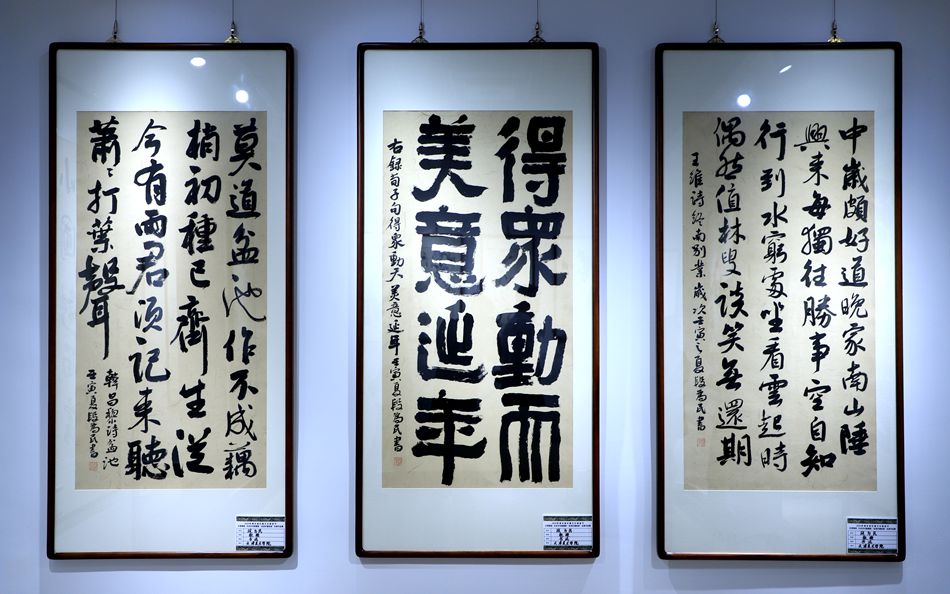 莫道盆池作不成藕
梢初種已齊生從
今有雨君須記来聽
蕭〻打葉聲
韓昌黎詩盆池
壬寅夏段為民書
得眾動天
美意延年
右録荀子句得眾動天美意延年壬寅夏段為民書
中歲頗好道晚家南山陲
興来每獨往勝事空自知
行到水窮處坐看雲起時
偶然值林叟談笑無還期
王維詩終南別業歲次壬寅之夏段為民書